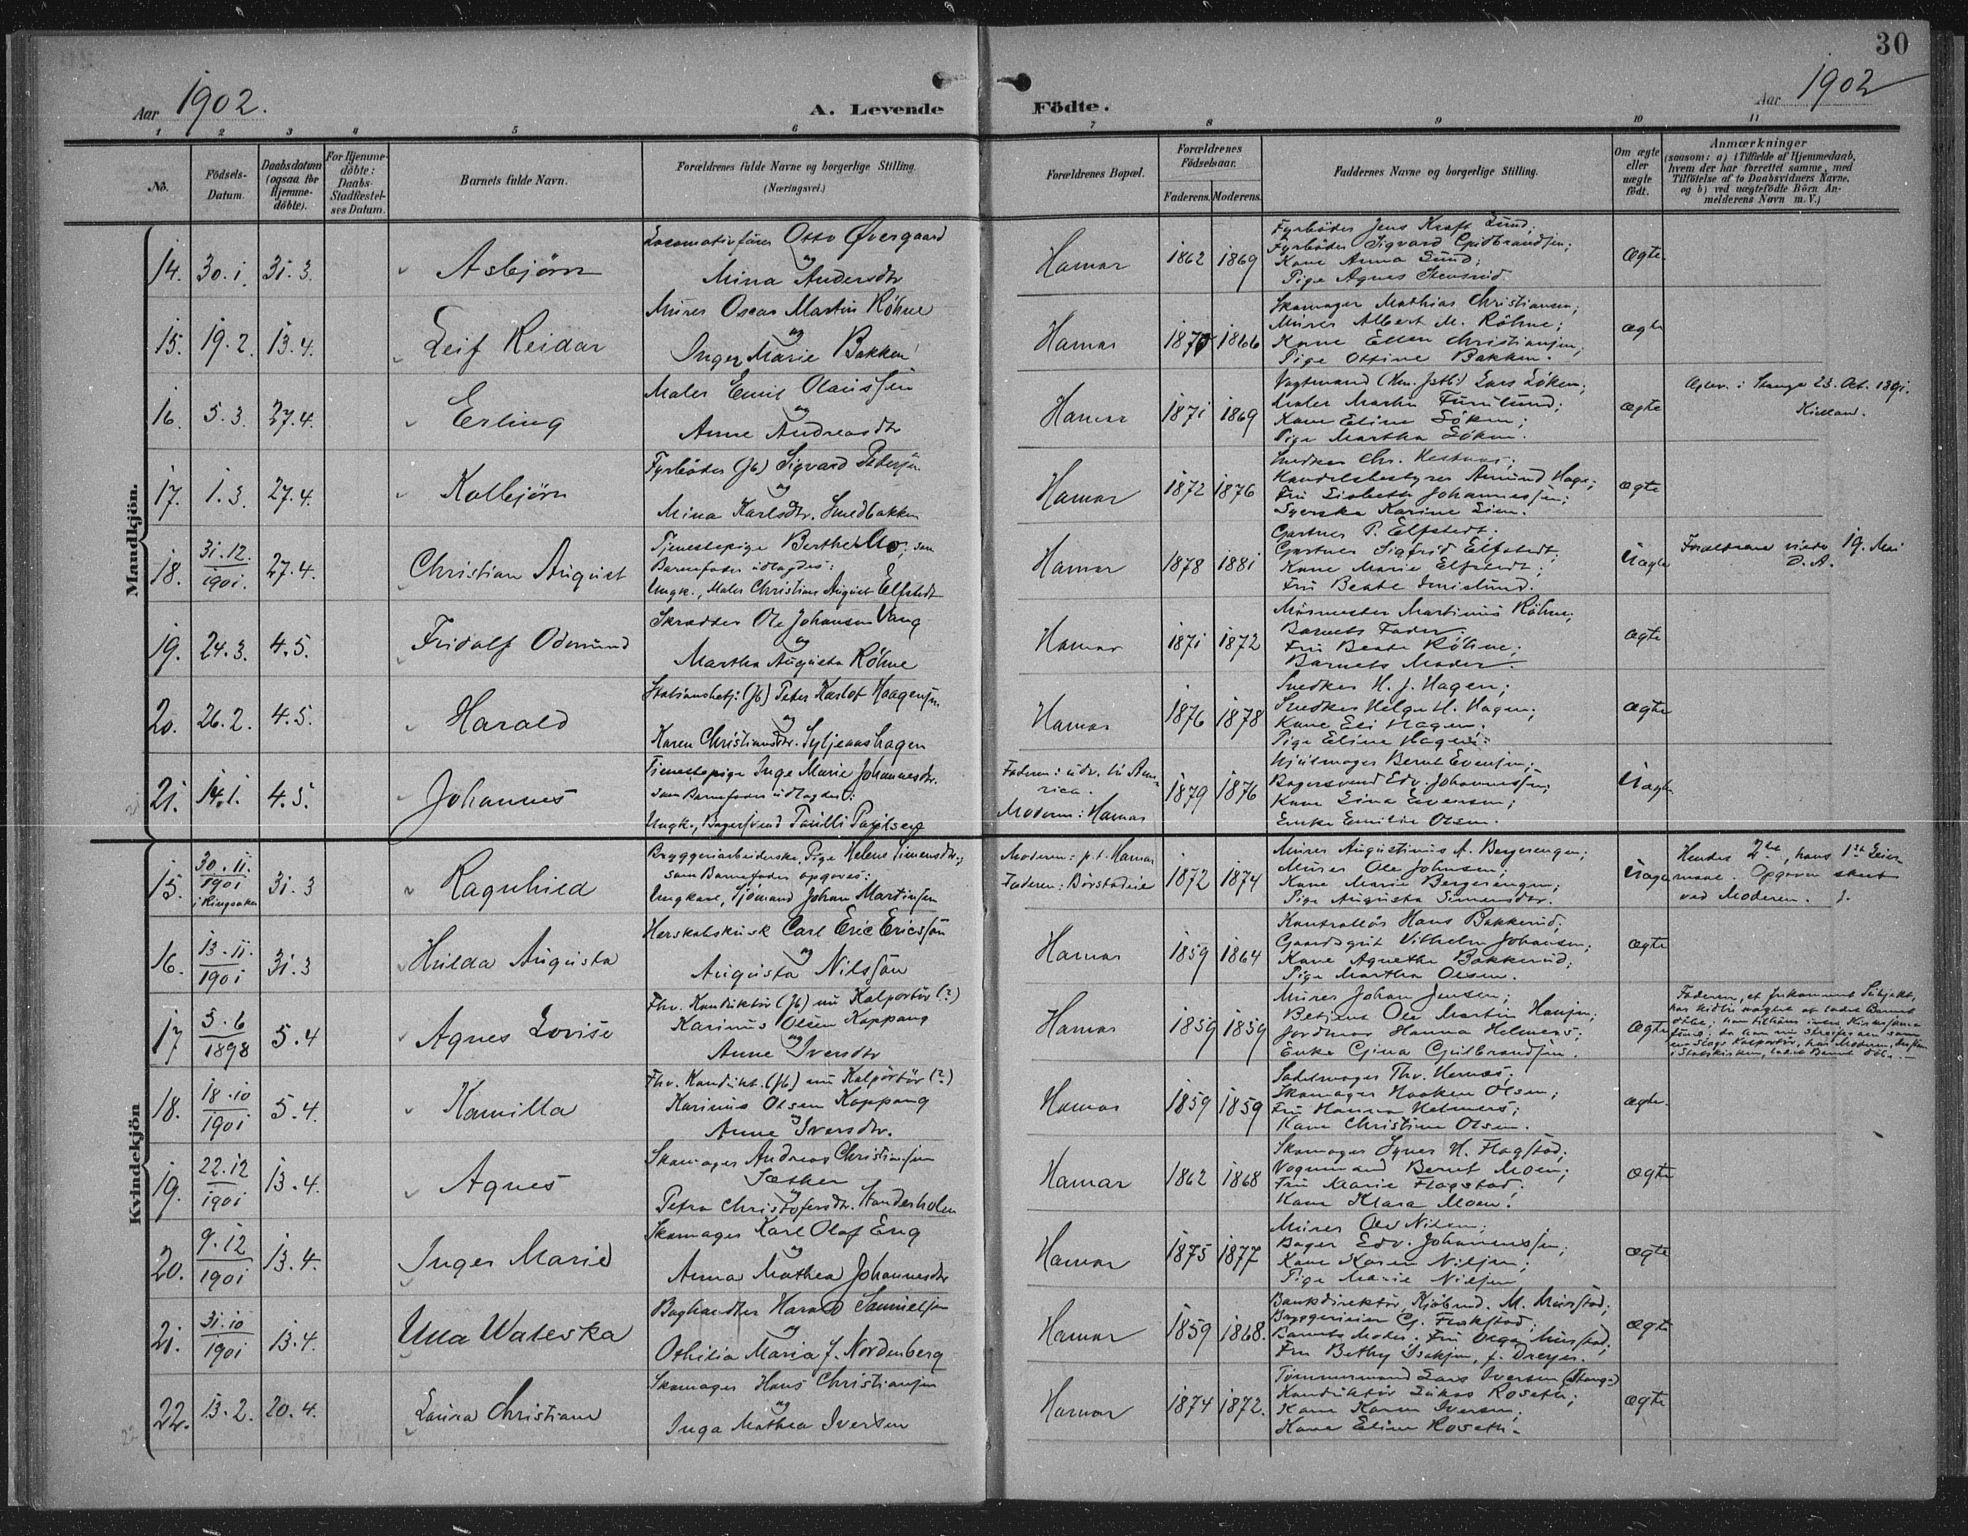 30
Aar 1902.
A. Levende Födte.
Aar 1902
1 2 3 4 5 6 7 8 9 10 11
No.
Födsels-Datum.
Daabsdatum (ogsaa for Hjemme-döbte).
For Hjemme-döbte: Daabs-Stadfæstel-ses Datum.
Barnets fulde Navn.
Forældrenes fulde Navne og borgerlige Stilling.
(Næringsvei.)
Forældrenes Bopæl.
Forældrenes Födselsaar.
Faderens. Moderens.
Faddernes Navne og borgerlige Stilling.
Om ægte eller uægte födt.
Anmærkninger
(saasom: a) i Tilfælde af Hjemmedaab, hvem der har forrettet samme, med Tilföielse af to Daabsvidners Navne, og b) ved uægtefödte Börn An-melderens Navn m. V.)
Mandkjön.
14. 30.1. 31.3. Asbjörn
Locomotivförer Otto Övergaard
og
Mina Andersdtr
Hamar 1862 1869
Fyrböder Jens Kraft Lund;
Fyrböder Sigvard Gulbrandsen;
Kone Anna Lund;
Pige Agnes Stensrud
ægte
15. 19.2. 13.4. Leif Reidar
Murer Oscar Martin Röhne
og
Inger Marie Bakken
Hamar 1875 1866
Skomager Mathias Christiansen;
Murer Albert M. Röhne;
Kone Ellen Christiansen;
Pige Ottine Bakken.
ægte
16. 5.3. 27.4. Erling
Maler Emil Olaussen
og
Anne Andreasdtr
Hamar 1871 1869
Vagtmand Lars Löken;
Maler Martin Furulund;
Kone Eline Löken;
Pige Martha Löken.
ægte
i Stange 23. Oct. 1891.
17. 1.3. 27.4. Kolbjörn
Fyrböder (Jb) Sigvard Pedersen
og
Mina Karlsdtr. Smedbakken
Hamar 1872 1876
Snedker Chr. Hestnæs;
Handelsbestyrer Amund Hage;
Fru Lisbeth Johannessen;
Syerske Karine Lien.
ægte
18. 31.12. 1901. 27.4. Christian August
Tjenestepige Berthe Mo; som
Barnefader udlagdes:
Ungk., Maler Christian August Elfstedt
Hamar 1878 1881
Gartner P. Elfstedt;
Gartner Sigfrid Elfstedt;
Kone Marie Elfstedt;
Fru Beate Smislund.
Uægte
Forældrene viede 19. Mai
D. A.
19. 24.3. 4.5. Fridolf Odmund
Skrædder Ole Johansen Vang
og
Martha Augusta Röhne
Hamar 1871 1872
Murmester Martinus Röhne;
Barnets Fader;
Fru Beate Röhne;
Barnets Moder.
ægte
20. 26.2. 4.5. Harald
Stationsbetj. (Jb) Peter Karlot Haagensen
og
Karen Christiansdtr. Syljeaashagen
Hamar 1876 1878
Snedker H. J. Hagen;
Snedker Helge H. Hagen;
Kone Eli Hagen;
Pige Eline Hagen.
ægte
21. 14.1. 4.5. Johannes
Tjenestepige Inge Marie Johannesdtr.
som Barnefader udlagdes:
Ungk., Bagersvend
Faderen: udv. til Ame-
rica.
Moderen: Hamar
1879 1876
Hjulmager Bernt Evensen;
Bagersvend Edv. Johannessen;
Kone Lina Evensen;
Enke Emilie Olsen.
Uægte
Kvindekjön
15. 30.11. 1901 i Ringsaker 31.3 Ragnhild
Bryggeriarbeiderske, Pige Helene Simensdtr.;
som Barnefader opgaves:
Ungkarl, Sjömand Johan Martinsen
Moderen: p.t. Hamar
Faderen: Börstadeie
1872 1874
Murer Augustinus A. Bergerengen;
Murer Ole Johnsen;
Kone Marie Bergerengen;
Pige Augusta Simensdtr.
Uægte
Hendes 2det, hans 1ste Leier-
maal. Opgaven skeet
ved Moderen.
16. 13.11. 1901 31.3 Hulda Augusta
Herskabskusk Carl Eric Ericsson
og
Augusta Nilsson
Hamar 1859 1864
Kontrollör Hans Bakkerud;
Gaardsgut Vilhelm Johansen;
Kone Agnethe Bakkerud;
Pige Martha Olsen.
ægte
17 5.6 1898 5.4 Agnes Lovise
Fhv. Konduktör (Jb) nu Kolportör (?)
Karinus Olsen Koppang
og
Anne Iversdtr
Hamar 1859 1859
Murer Johan Jensen;
Betjent Ole Martin Hansen;
Jordmor Hanna Helmers;
Enke Gina Gulbrandsen.
ægte
Faderen, et forkomment Subjekt,
har hidtil nægtet at ladet Barnet
döbe;
18. 18.10 1901 5.4. Kamilla
Fhv. Kondukt. (Jb) nu Kolportör (?)
Karinus Olsen Koppang
og
Anne Iversdtr.
Hamar 1859 1859
Sadelmager Thv. Hernæs;
Skomager Haaken Olsen;
Fru Hanna Helmers;
Kone Christine Olsen.
ægte.
19. 22.12 1901 13.4. Agnes
Skomager Andreas Christiansen
Sæther
og
Petra Christofersdtr. Stonderholen
Hamar 1862 1868
Skomager Syver H. Flagstad;
Vognmand Bernt Moen;
Fru Marie Flagstad;
Kone Klara Moen.
ægte
20. 9.12 1901 13.4. Inger Marie
Skomager Karl Olaf Eng
og
Anna Mathea Johannesdtr
Hamar 1875 1877
Murer Ole Nilsen;
Bager Edv. Johannessen;
Kone Karen Nilsen;
Pige Marie Nilsen
ægte
21. 31.10 1901 13.4. Ulla Waleska
Boghandler Harald Samuelsen
og
Othilia Maria f. Nordenberg
Hamar 1859 1868.
Bankdirektör, Kjöbmd. M. Mustad;
Bryggerieier
Barnets Moder. Fru Olga Mustad;
Fru Bethy Isaksen, f. Dreyer.
ægte
22. 13.2. 20.4. Laura Christiane
Skomager Hans Christiansen
og
Inga Mathea Iversen
Hamar 1874 1872.
Tömmermand Lars Iversen (Stange)
Konduktör Lukas Roseth;
Kone Karen Iversen;
Kone Eline Roseth.
ægte